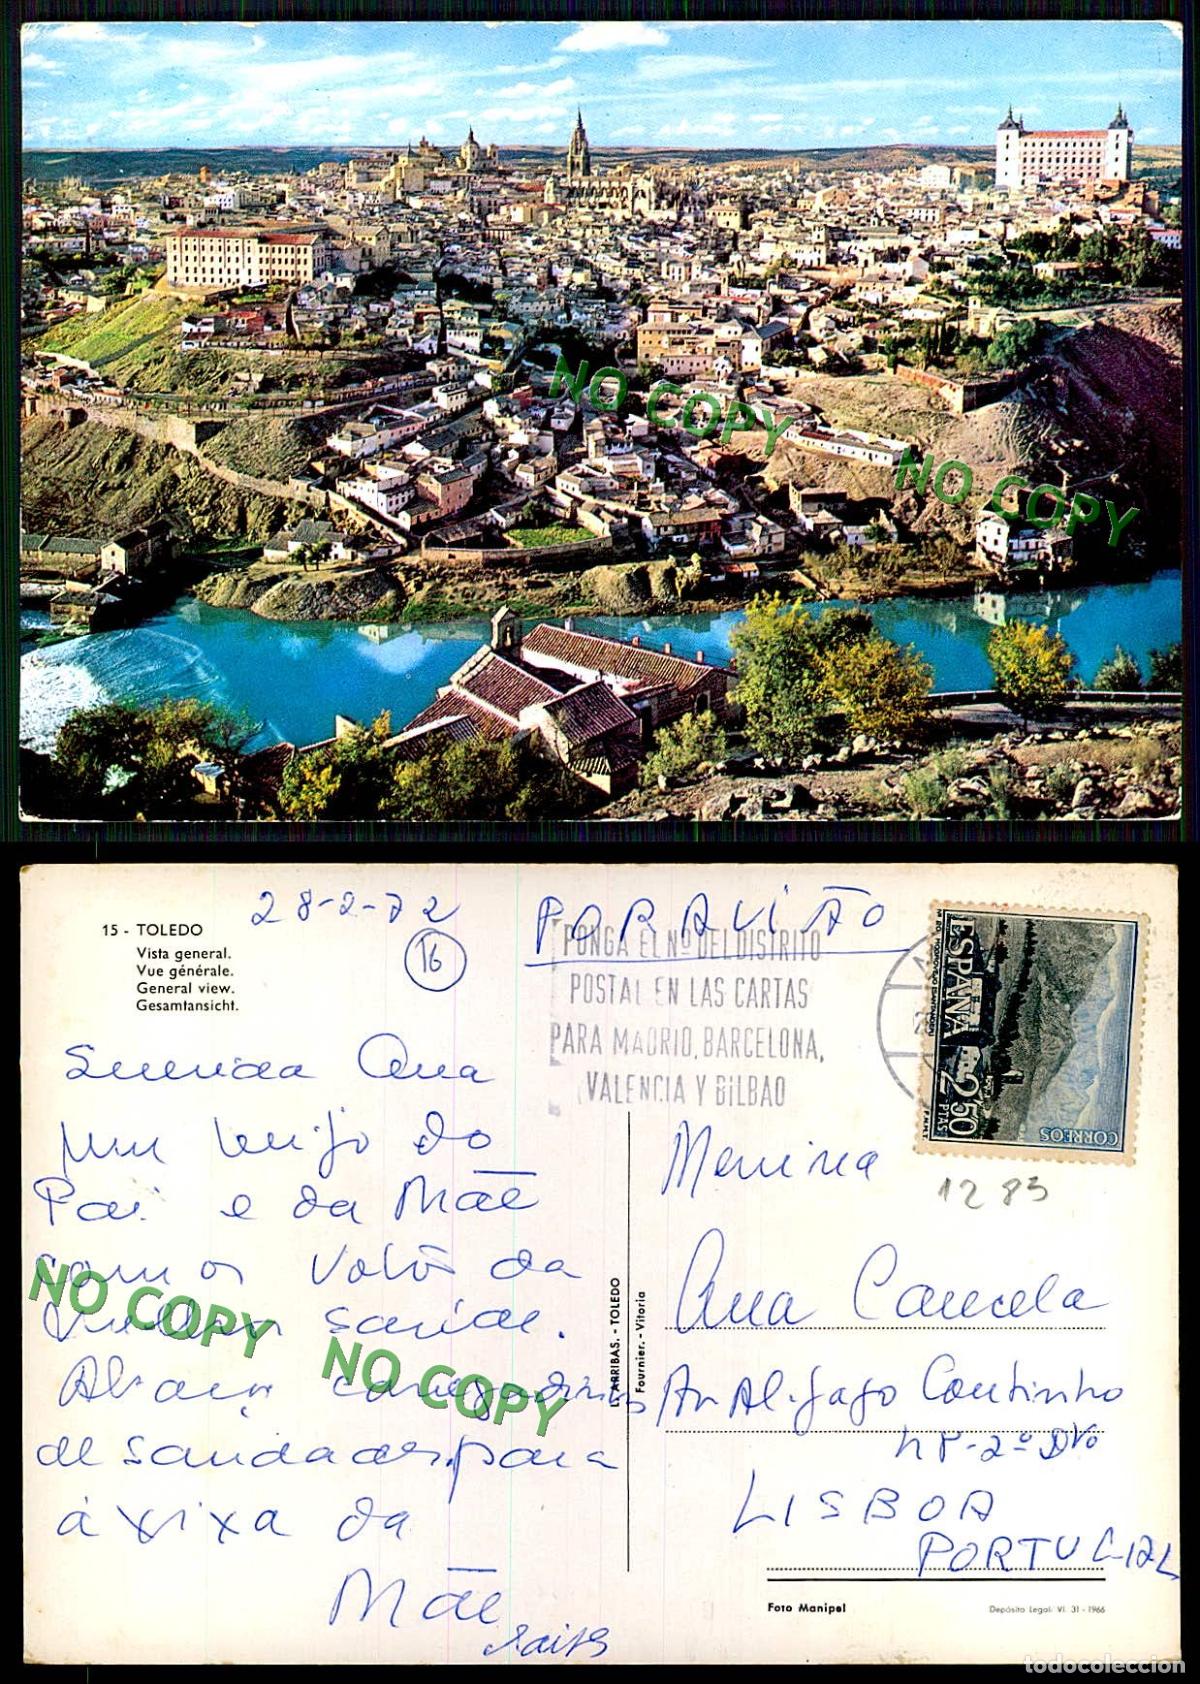 NO COPY
NO COPY
15 - TOLEDO
Vista general.
Vue générale.
General view.
Gesamtansicht.
28-2-72
16
POR AVIÃO
PONGA EL Nº DEL DISTRITO
POSTAL EN LAS CARTAS
PARA MADRID, BARCELONA,
VALENCIA Y BILBAO
ESPAÑA
2'50
PTAS
CORREOS
1283
Ana
Um beijo do
Pai e da Mãe
com os votos da
NO COPY
melhor saúde.
NO COPY
de saudades para
a xixa da
Mãe
Menina
Ana Cancela
Av Al. Gago Coutinho
2º Dto
LISBOA
PORTUGAL
E. ARRIBAS. - TOLEDO
Fournier. - Vitoria
Foto Manipel
Depósito Legal: VI. 31 - 1966
todocoleccion